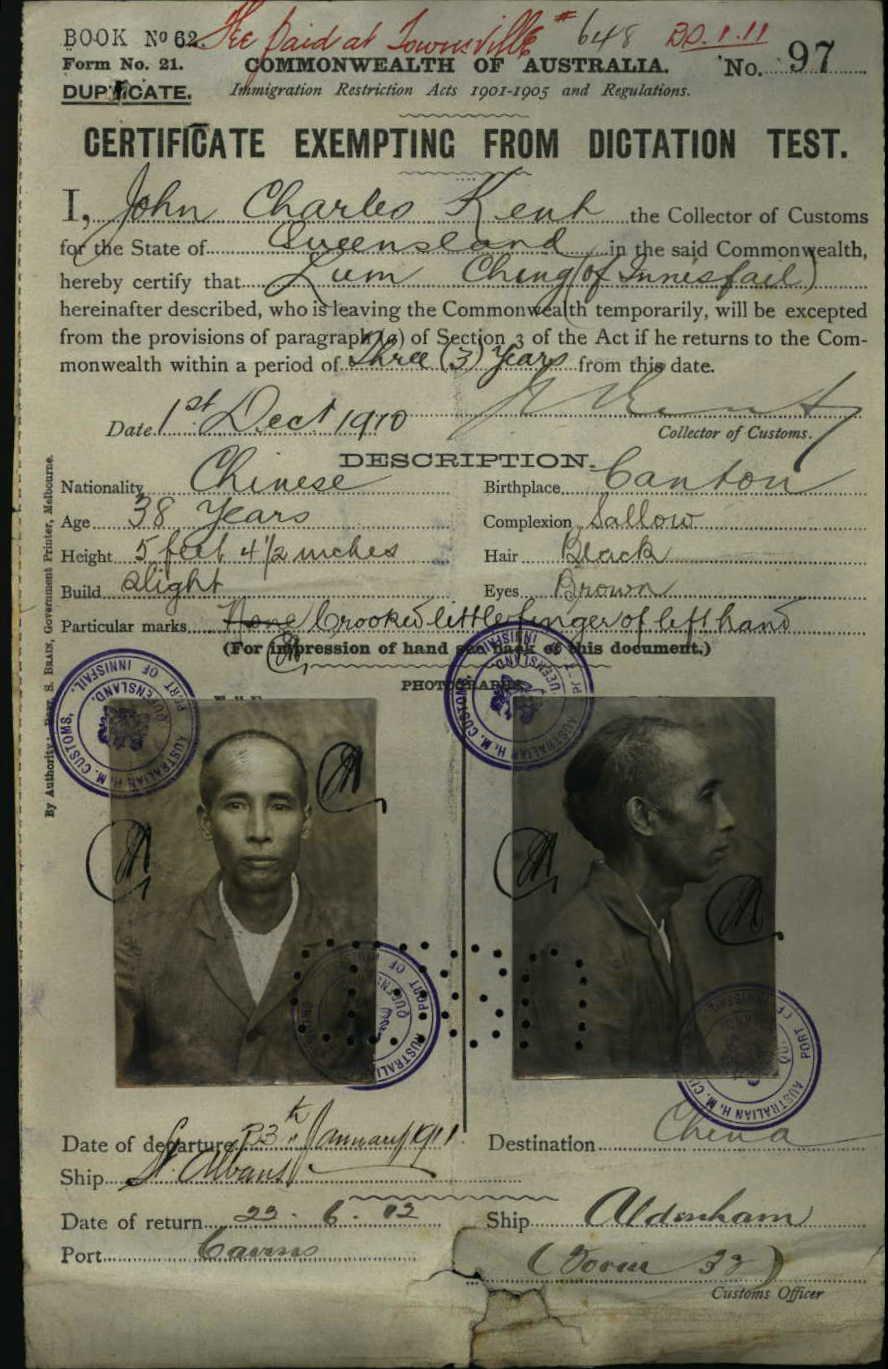 BOOK No 62. Fee paid at Townsville # 648 20.1.11
Form No. 21. COMMONWEALTH OF AUSTRALIA. No. 97
DUPLICATE. Immigration Restriction Acts 1901-1905 and Regulations.
CERTIFICATE EXEMPTING FROM DICTATION TEST.
I, John Charles Kent the Collector of Customs
for the State of Queensland in the said Commonwealth,
hereby certify that Lum Ching (of Innisfail)
hereinafter described, who is leaving the Commonwealth temporarily, will be excepted
from the provisions of paragraph (a) of Section 3 of the Act if he returns to the Com-
monwealth within a period of Three (3) Years from this date.
Date 1st Dect 1910
Collector of Customs.
DESCRIPTION.
Nationality Chinese Birthplace Canton
Age 38 Years Complexion Sallow
Height 5 feet 4 1/2 inches Hair Black
Build Slight Eyes Brown
Particular marks None Crooked little finger of left hand
(For impression of hand see back of this document.)
PHOTOGRAPHS
By Authority: S. BRAIN, Government Printer, Melbourne.
AUSTRALIAN H. M. CUSTOMS, PORT OF INNISFAIL, QUEENSLAND.
Date of departure 23rd January 1911 Destination China
Ship St. Albans
Date of return 23.6.12 Ship Aldenham
Port Cairns (Form 32)
Customs Officer